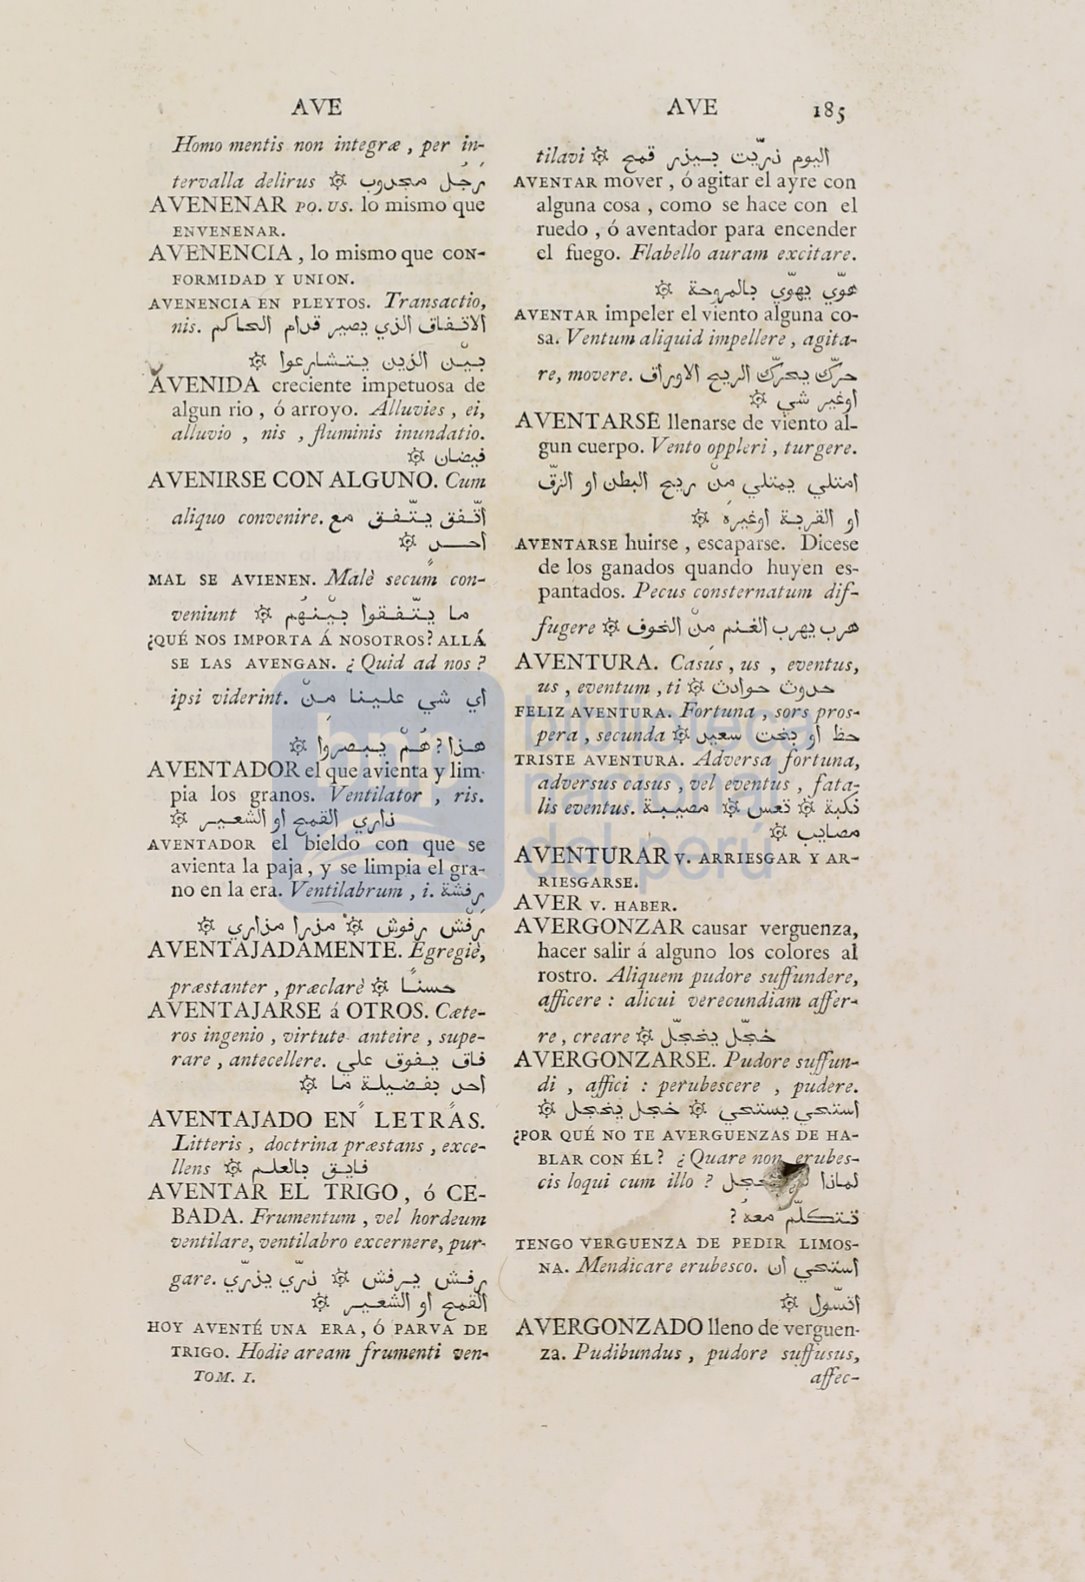 AVE
Homo mentis non integræ, per in-
tervalla delirus ۞ رجل مجدوب
AVENENAR po. us. lo mismo que
ENVENENAR.
AVENENCIA, lo mismo que CON-
FORMIDAD Y UNION.
AVENENCIA EN PLEYTOS. Transactio,
nis. الاتفاق الذي يصير قدام الحاكم
بين الذين يتشارعوا ۞
AVENIDA creciente impetuosa de
algun rio, ó arroyo. Alluvies, ei,
alluvio, nis, fluminis inundatio.
فيضان ۞
AVENIRSE CON ALGUNO. Cum
aliquo convenire. اتّفق يتّفق مع
احد ۞
MAL SE AVIENEN. Malè secum con-
veniunt ۞ ما يتّفقوا بينهم
¿QUÉ NOS IMPORTA Á NOSOTROS? ALLÁ
SE LAS AVENGAN. ¿Quid ad nos?
ipsi viderint. اي شي علينا من
هذا? هُم يبصروا ۞
AVENTADOR el que avienta y lim-
pia los granos. Ventilator, ris.
ذاري القمح او الشعير ۞
AVENTADOR el bieldo con que se
avienta la paja, y se limpia el gra-
no en la era. Ventilabrum, i. رفشة
رفش رفوش ۞ مذرا مذاري ۞
AVENTAJADAMENTE. Egregiè,
præstanter, præclarè ۞ حسنًا
AVENTAJARSE á OTROS. Cæte-
ros ingenio, virtute anteire, supe-
rare, antecellere. فاق يفوق علي
احد بفضيلة ما ۞
AVENTAJADO EN LETRAS.
Litteris, doctrina præstans, exce-
llens ۞ فايق بالعلم
AVENTAR EL TRIGO, ó CE-
BADA. Frumentum, vel hordeum
ventilare, ventilabro excernere, pur-
gare. رفش يرفش ۞ ذرّي يذرّي
القمح او الشعير ۞
HOY AVENTÉ UNA ERA, Ó PARVA DE
TRIGO. Hodie aream frumenti ven-
TOM. I.
AVE 185
tilavi ۞ اليوم ذرّيت بيدر قمح
AVENTAR mover, ó agitar el ayre con
alguna cosa, como se hace con el
ruedo, ó aventador para encender
el fuego. Flabello auram excitare.
هوّي يهوّي بالمروحة ۞
AVENTAR impeler el viento alguna co-
sa. Ventum aliquid impellere, agita-
re, movere. حرّك يحرّك الريح الاوراق
اوغير شي ۞
AVENTARSE llenarse de viento al-
gun cuerpo. Vento oppleri, turgere.
امتلي يمتلي من ريح البطن او الزقّ
او القربة اوغيره ۞
AVENTARSE huirse, escaparse. Dicese
de los ganados quando huyen es-
pantados. Pecus consternatum dif-
fugere ۞ هرب يهرب الغنم من الخوف
AVENTURA. Casus, us, eventus,
us, eventum, ti ۞ حدوث حوادث
FELIZ AVENTURA. Fortuna, sors pros-
pera, secunda ۞ حظ او بخت سعيد
TRISTE AVENTURA. Adversa fortuna,
adversus casus, vel eventus, fata-
lis eventus. نكبة ۞ تعس ۞ مصيبة
مصايب ۞
AVENTURAR V. ARRIESGAR Y AR-
RIESGARSE.
AVER V. HABER.
AVERGONZAR causar verguenza,
hacer salir á alguno los colores al
rostro. Aliquem pudore suffundere,
afficere: alicui verecundiam affer-
re, creare ۞ خجّل يخجّل
AVERGONZARSE. Pudore suffun-
di, affici: perubescere, pudere.
استحي يستحي ۞ خجل يخجل ۞
¿POR QUÉ NO TE AVERGUENZAS DE HA-
BLAR CON ÉL? ¿Quare non erubes-
cis loqui cum illo? لماذا
تتكلّم معه?
TENGO VERGUENZA DE PEDIR LIMOS-
NA. Mendicare erubesco. استحي ان
اتسّول ۞
AVERGONZADO lleno de verguen-
za. Pudibundus, pudore suffusus,
affec-
bnp
biblioteca
nacional
del perú